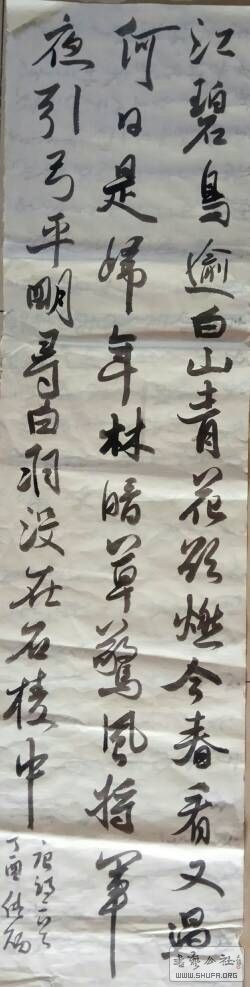 江碧鳥逾白山青花欲燃今春看又過
何日是歸年林暗草驚風將軍
夜引弓平明尋白羽没在石棱中
唐詩二首
丁酉
WWW.SHUFA.ORG